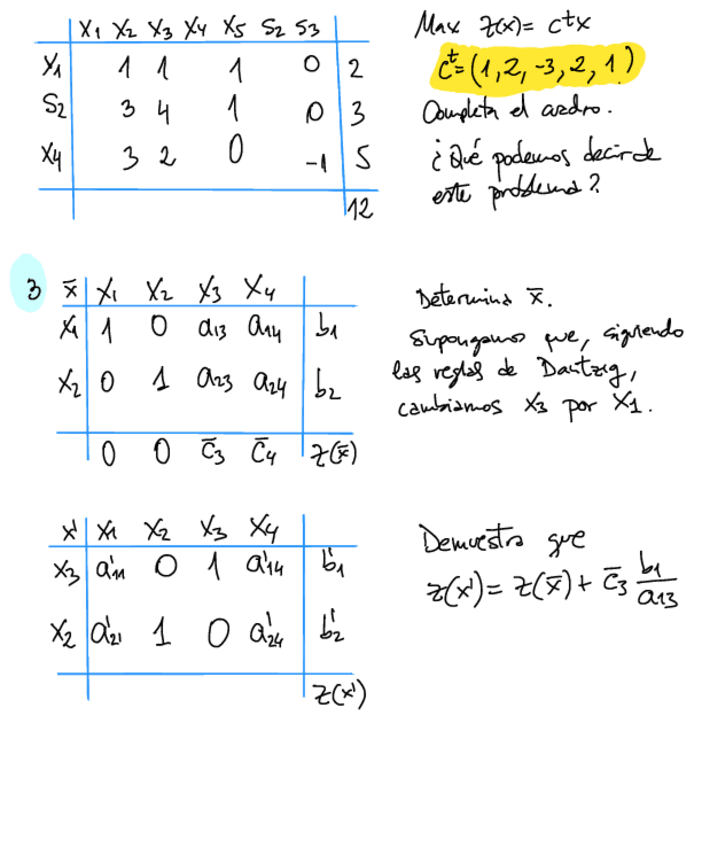 X1 X2 X3 X4 X5 S2 S3
X1 1 1 1 0 2
S2 3 4 1 0 3
X4 3 2 0 -1 5
12
Max Z(x)= cᵗx
cᵗ=(1,2,-3,2,1)
Completa el cuadro.
¿Qué podemos decir de
este problema?
3 x̄ X1 X2 X3 X4
X1 1 0 a13 a14 b1
X2 0 1 a23 a24 b2
0 0 c̄3 c̄4 z(x̄)
Determina x̄.
Supongamos que, siguiendo
las reglas de Dantzig,
cambiamos X3 por X1.
x' X1 X2 X3 X4
X3 a'11 0 1 a'14 b'1
X2 a'21 1 0 a'24 b'2
z(x')
Demuestra que
z(x')= z(x̄)+ c̄3 b1/a13